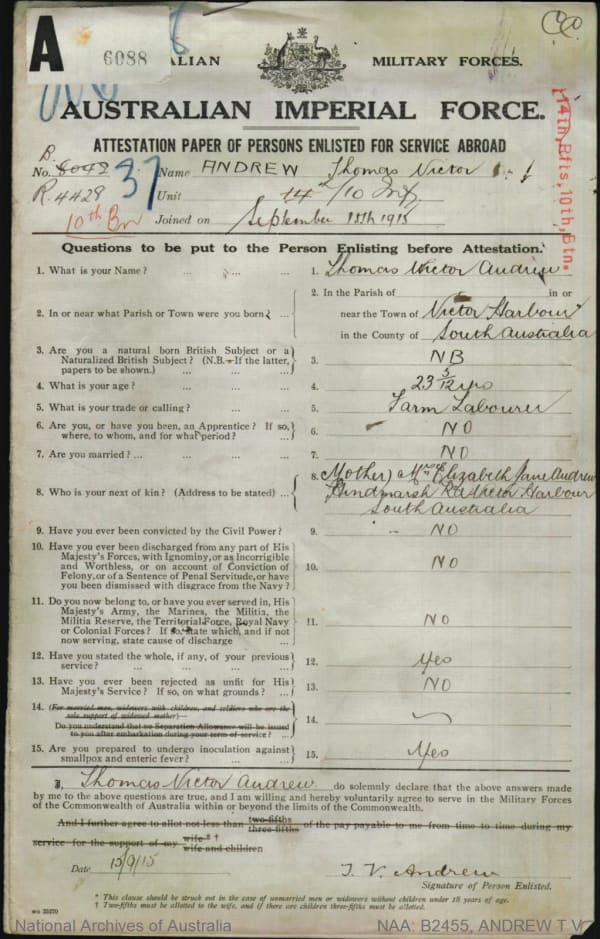 A
6088
ALIAN MILITARY FORCES.
AUSTRALIAN IMPERIAL FORCE.
ATTESTATION PAPER OF PERSONS ENLISTED FOR SERVICE ABROAD
14th, Rfts, 10th, Btn.
B.
No. 6049 37 Name ANDREW Thomas Victor
R.4429 Unit 14th/10 Inf.
10th Bn Joined on September 15th 1915
Questions to be put to the Person Enlisting before Attestation.
1. What is your Name? ... ... ... 1. Thomas Victor Andrew
2. In or near what Parish or Town were you born? ... 2. In the Parish of in or
near the Town of Victor Harbour
in the County of South Australia
3. Are you a natural born British Subject or a
Naturalized British Subject? (N.B.—If the latter,
papers to be shown.) ... ... ... 3. NB
4. What is your age? ... ... ... 4. 23 5/12 yrs
5. What is your trade or calling? ... ... 5. Farm Labourer
6. Are you, or have you been, an Apprentice? If so,
where, to whom, and for what period? ... 6. NO
7. Are you married? ... ... ... ... 7. NO
8. Who is your next of kin? (Address to be stated) ... 8. (Mother) Mrs Elizabeth Jane Andrew
Hindmarsh Rd Victor Harbour
South Australia
9. Have you ever been convicted by the Civil Power? 9. NO
10. Have you ever been discharged from any part of His
Majesty's Forces, with Ignominy, or as Incorrigible
and Worthless, or on account of Conviction of
Felony, or of a Sentence of Penal Servitude, or have
you been dismissed with disgrace from the Navy? 10. NO
11. Do you now belong to, or have you ever served in, His
Majesty's Army, the Marines, the Militia, the
Militia Reserve, the Territorial Force, Royal Navy
or Colonial Forces? If so, state which, and if not
now serving, state cause of discharge 11. NO
12. Have you stated the whole, if any, of your previous
service? ... ... ... ... 12. Yes
13. Have you ever been rejected as unfit for His
Majesty's Service? If so, on what grounds? ... 13. NO
14. (For married men, widowers with children, and soldiers who are the
sole support of widowed mother)—
Do you understand that no Separation Allowance will be issued
to you after embarkation during your term of service? ... 14.
15. Are you prepared to undergo inoculation against
smallpox and enteric fever? ... ... 15. Yes
I, Thomas Victor Andrew do solemnly declare that the above answers made
by me to the above questions are true, and I am willing and hereby voluntarily agree to serve in the Military Forces
of the Commonwealth of Australia within or beyond the limits of the Commonwealth.
And I further agree to allot not less than two-fifths three-fifths of the pay payable to me from time to time during my
service for the support of my wife * † wife and children
Date 15/9/15 T. V. Andrew
Signature of Person Enlisted.
* This clause should be struck out in the case of unmarried men or widowers without children under 18 years of age.
† Two-fifths must be allotted to the wife, and if there are children three-fifths must be allotted.
National Archives of Australia NAA: B2455, ANDREW T V